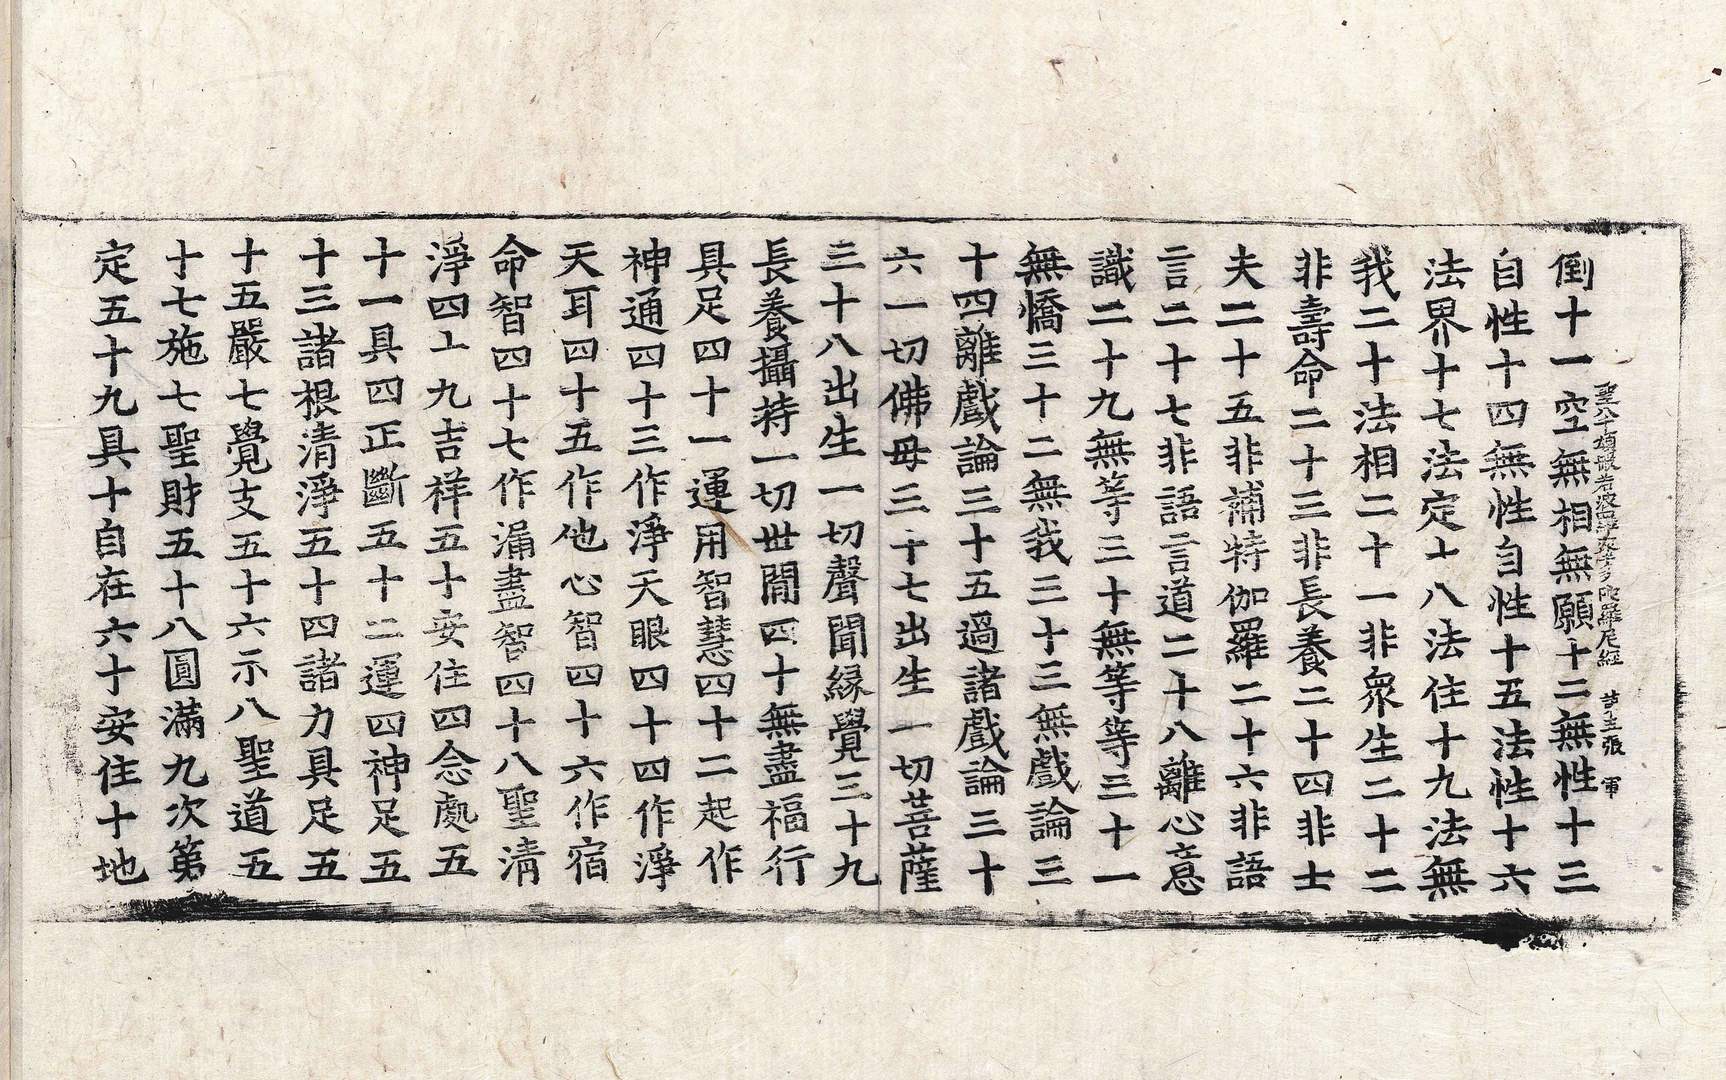 聖八千頌般若波羅蜜多陀羅尼經 主張 軍
倒十一空無相無願十二無性十三
自性十四無性自性十五法性十六
法界十七法定十八法住十九法無
我二十法相二十一非衆生二十二
非壽命二十三非長養二十四非士
夫二十五非補特伽羅二十六非語
言二十七非語言道二十八離心意
識二十九無等三十無等等三十一
無憍三十二無我三十三無戲論三
十四離戲論三十五過諸戲論三十
六一切佛母三十七出生一切菩薩
三十八出生一切聲聞緣覺三十九
長養攝持一切世間四十無盡福行
具足四十一運用智慧四十二起作
神通四十三作淨天眼四十四作淨
天耳四十五作他心智四十六作宿
命智四十七作漏盡智四十八聖清
淨四十九吉祥五十安住四念處五
十一具四正斷五十二運四神足五
十三諸根清淨五十四諸力具足五
十五嚴七覺支五十六示八聖道五
十七施七聖財五十八圓滿九次第
定五十九具十自在六十安住十地